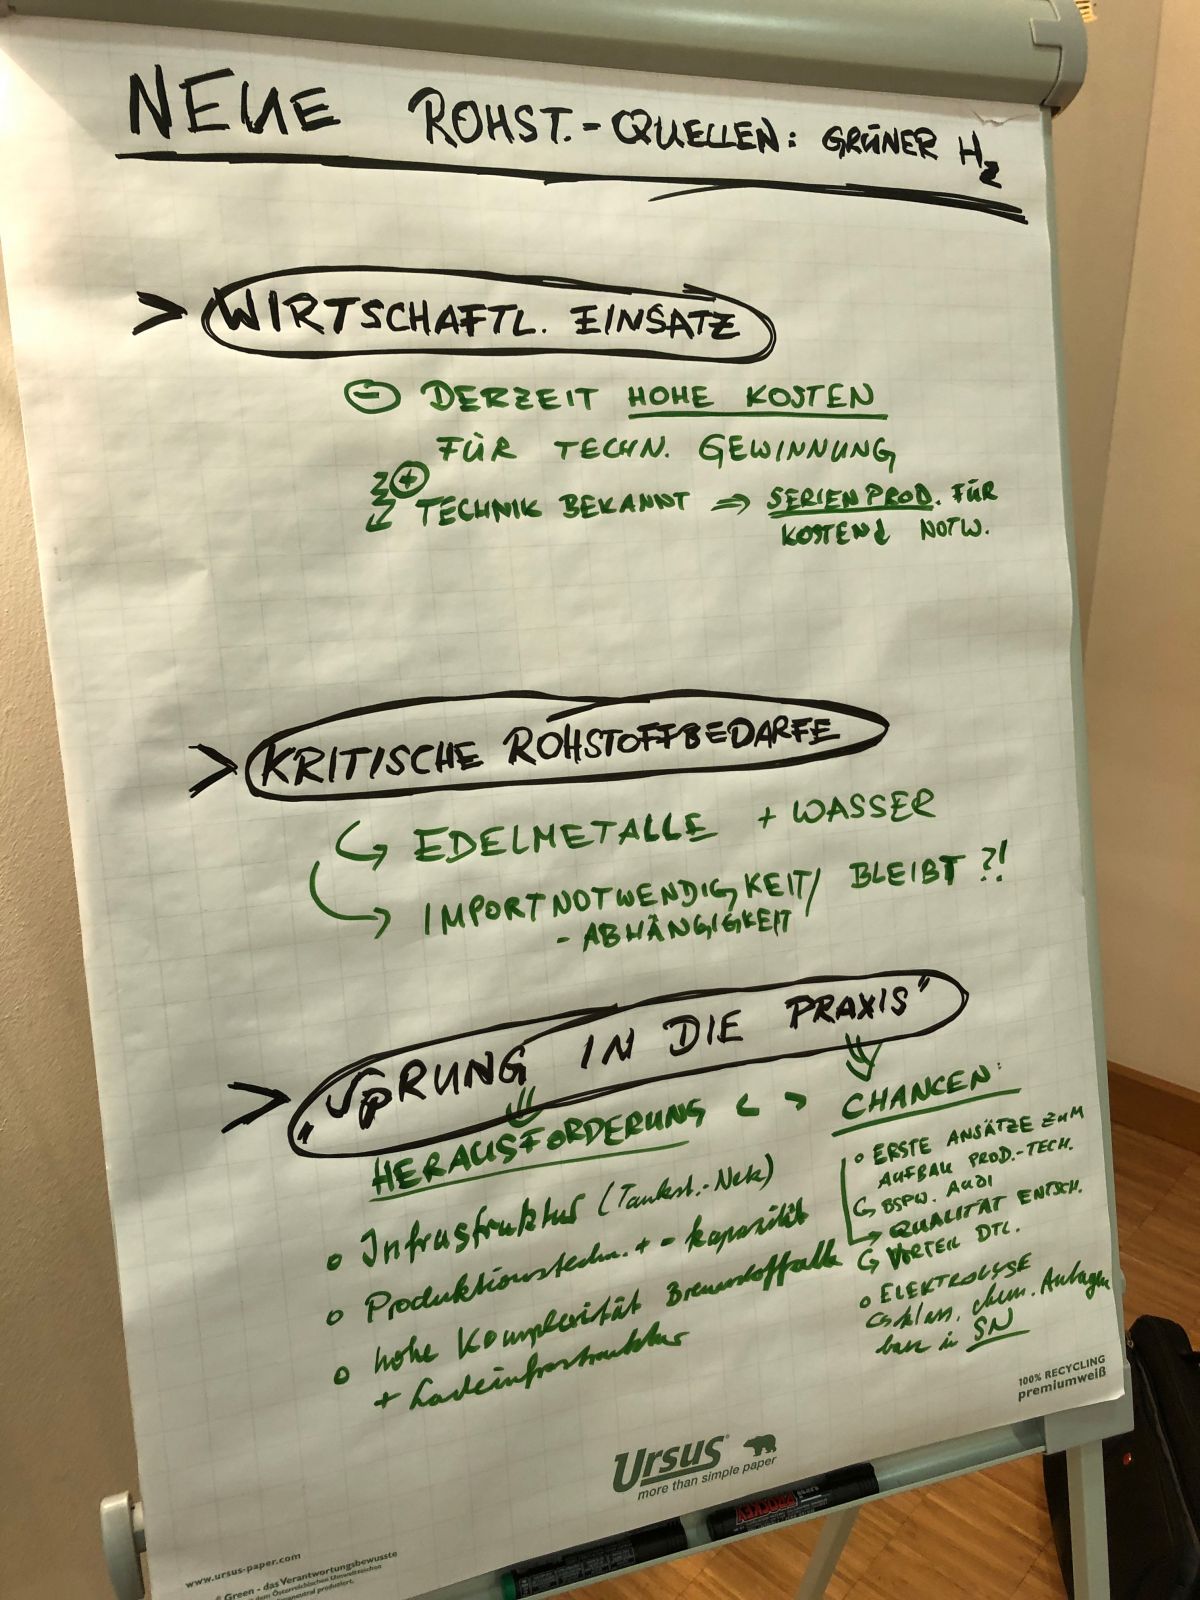 NEUE ROHST.-QUELLEN: GRÜNER H2
> WIRTSCHAFTL. EINSATZ
⊖ DERZEIT HOHE KOSTEN
FÜR TECHN. GEWINNUNG
⊕ TECHNIK BEKANNT ⇒ SERIENPROD. FÜR
KOSTEN↓ NOTW.
> KRITISCHE ROHSTOFFBEDARFE
↪ EDELMETALLE + WASSER
↪ IMPORTNOTWENDIGKEIT/ BLEIBT ?!
- ABHÄNGIGKEIT
> "SPRUNG IN DIE PRAXIS"
HERAUSFORDERUNG < >
o Infrastruktur (Tankst.-Netz)
o Produktionstechn. + - kapazität
o hohe Komplexität Brennstoffzelle
+ Ladeinfrastruktur
CHANCEN:
o ERSTE ANSÄTZE ZUM
AUFBAU PROD.-TECH.
↪ BSPW. AUDI
→ QUALITÄT ENTSCH.
↪ VORTEIL DTL.
o ELEKTROLYSE
klass. chem. Anlagen
in SN
100% RECYCLING
premiumweiß
Ursus
more than simple paper
www.ursus-paper.com
Green - das Verantwortungsbewusste
dem Österreichischen Umweltzeichen